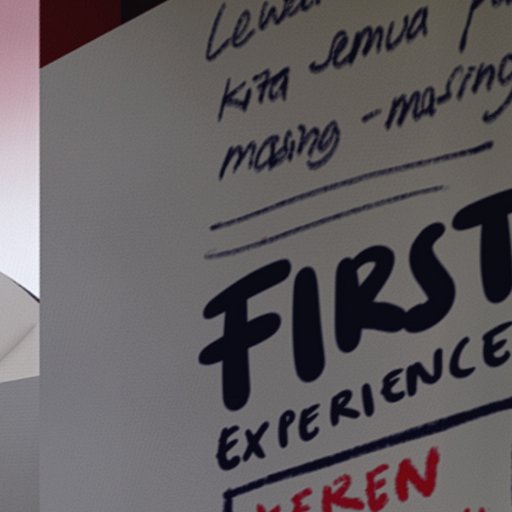 kita semua
masing-masing
FIRST
EXPERIENCE
KEREN